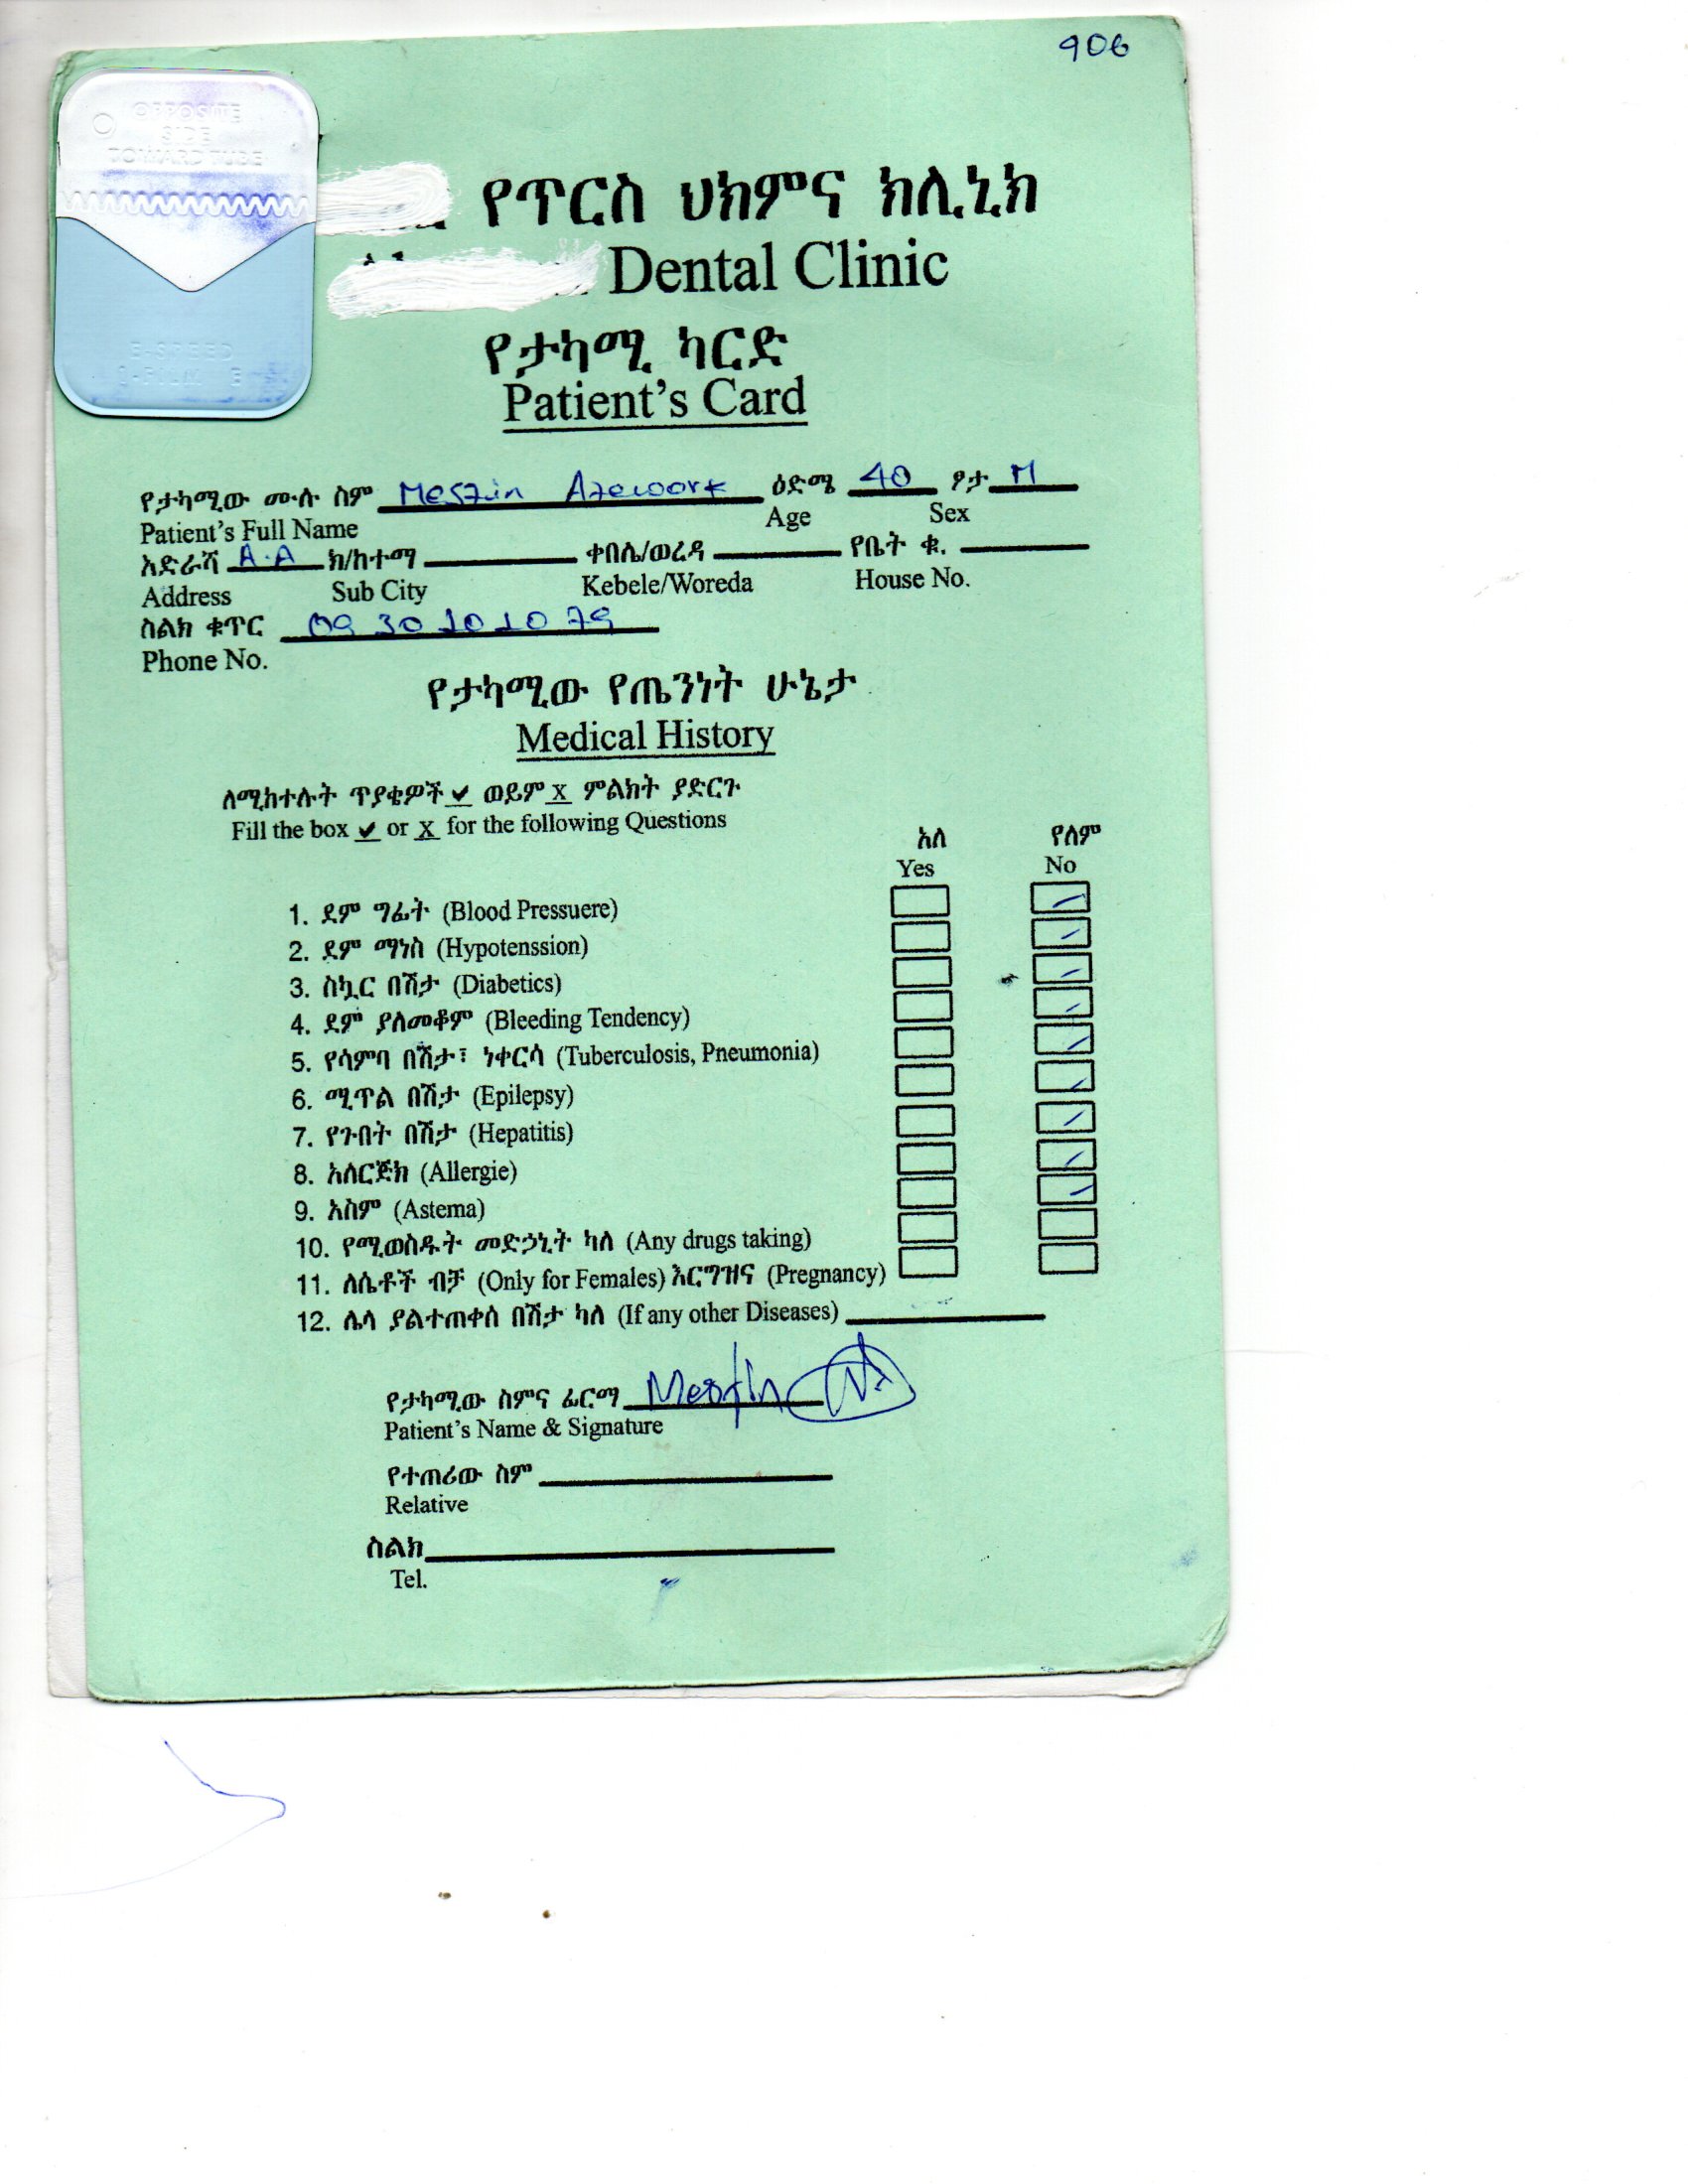 906
OPPOSITE
SIDE
TOWARD TUBE
የጥርስ ህክምና ክሊኒክ
Dental Clinic
E-SPEED
የታካሚ ካርድ
Patient's Card
የታካሚው ሙሉ ስም Mesfin Azework ዕድሜ 40 ፆታ M
Patient's Full Name Age Sex
አድራሻ A.A ክ/ከተማ ቀበሌ/ወረዳ የቤት ቁ.
Address Sub City Kebele/Woreda House No.
ስልክ ቁጥር 09 30 10 10 79
Phone No.
የታካሚው የጤንነት ሁኔታ
Medical History
ለሚከተሉት ጥያቄዎች ✔ ወይም X ምልክት ያድርጉ
Fill the box ✔ or X for the following Questions
አለ የለም
Yes No
1. ደም ግፊት (Blood Pressuere)
2. ደም ማነስ (Hypotenssion)
3. ስኳር በሽታ (Diabetics)
4. ደም ያለመቆም (Bleeding Tendency)
5. የሳምባ በሽታ፣ ነቀርሳ (Tuberculosis, Pneumonia)
6. ሚጥል በሽታ (Epilepsy)
7. የጉበት በሽታ (Hepatitis)
8. አለርጅክ (Allergie)
9. አስም (Astema)
10. የሚወስዱት መድኃኒት ካለ (Any drugs taking)
11. ለሴቶች ብቻ (Only for Females) እርግዝና (Pregnancy)
12. ሌላ ያልተጠቀሰ በሽታ ካለ (If any other Diseases)
የታካሚው ስምና ፊርማ Mesfin
Patient's Name & Signature
የተጠሪው ስም
Relative
ስልክ
Tel.